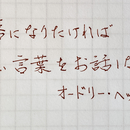 になりたければ
言葉をお話し
オードリー・ヘッ